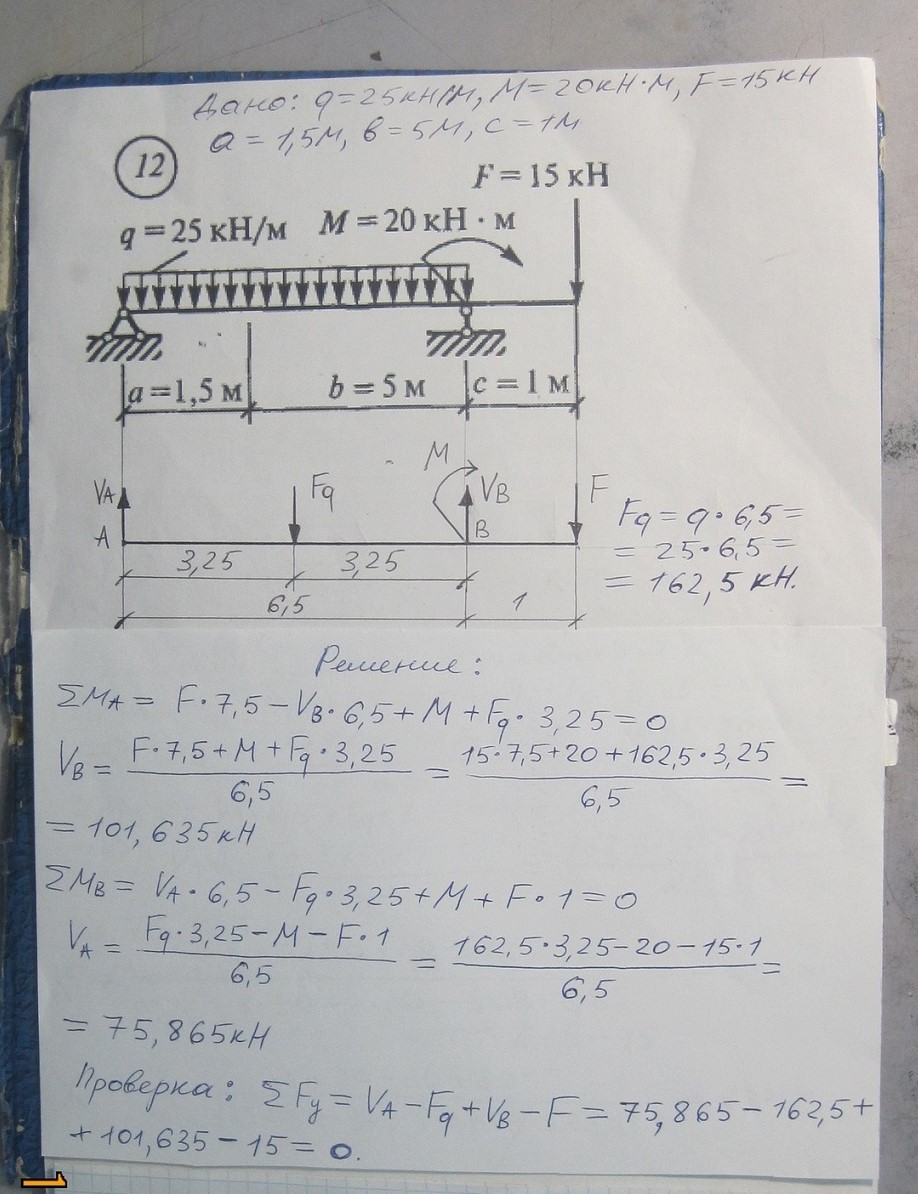 Дано: q=25кН/м, M=20кН·м, F=15кН
a=1,5м, в=5м, c=1м
12
F = 15 кН
q = 25 кН/м M = 20 кН · м
a = 1,5 м b = 5 м c = 1 м
M
VA Fq VB F
A B
3,25 3,25
6,5 1
Fq = q·6,5=
= 25·6,5=
= 162,5 кН.
Решение:
ΣMA = F·7,5-VB·6,5+M+Fq·3,25=0
VB = (F·7,5+M+Fq·3,25)/6,5 = (15·7,5+20+162,5·3,25)/6,5 =
= 101,635кН
ΣMB = VA·6,5-Fq·3,25+M+F·1=0
VA = (Fq·3,25-M-F·1)/6,5 = (162,5·3,25-20-15·1)/6,5 =
= 75,865кН
Проверка: ΣFy = VA-Fq+VB-F=75,865-162,5+
+101,635-15=0.
1